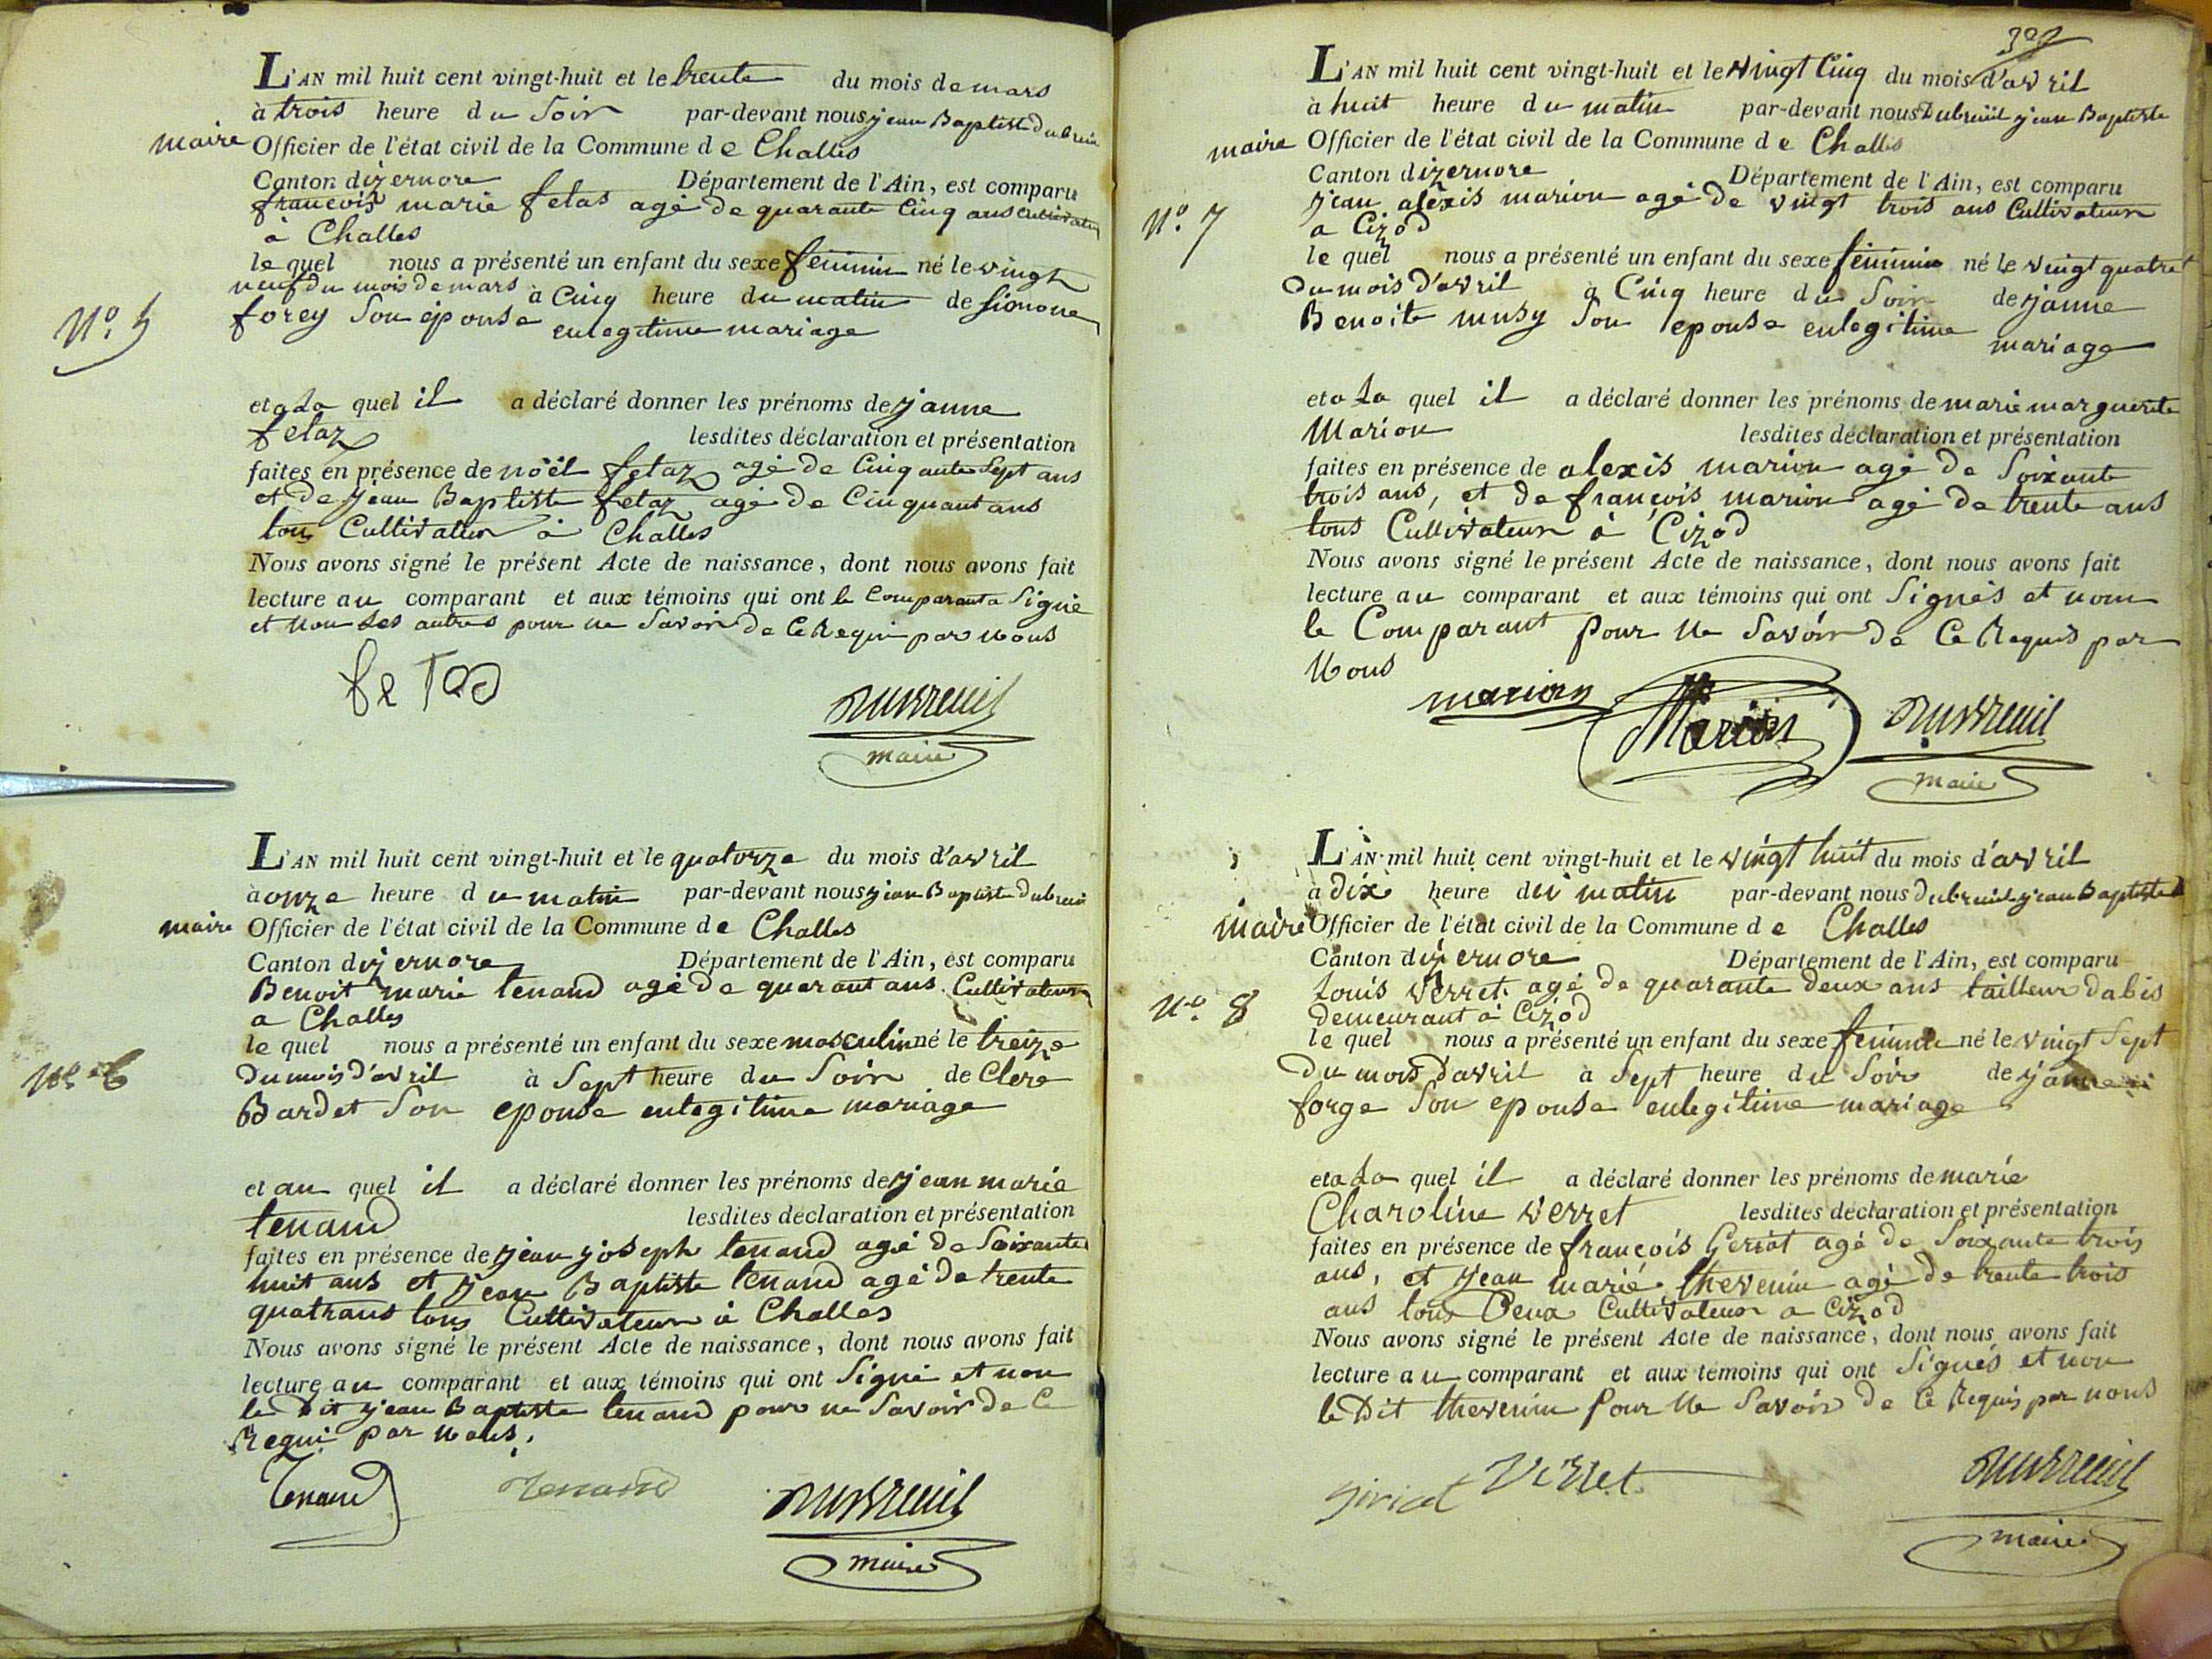 L'AN mil huit cent vingt-huit et le trente du mois de mars
à trois heure du Soir par-devant nous jean Baptiste dubreuil
maire Officier de l'état civil de la Commune de Challes
Canton dizernore Département de l'Ain, est comparu
françois marie fetas agé de quarante Cinq ans Cultivateur
à Challes
le quel nous a présenté un enfant du sexe féminin né le vingt
neuf du mois de mars à Cinq heure du matin de Simone
N° 5
forey Son éponse enlegitime mariage
et a La quel il a déclaré donner les prénoms de janne
fetaz lesdites déclaration et présentation
faites en présence de noël fetaz agé de Cinq ante Sept ans
et de jean Baptiste fetaz agé de Cinquant ans
tous Cultivateur à Challes
Nous avons signé le présent Acte de naissance, dont nous avons fait
lecture au comparant et aux témoins qui ont le Comparant a Signé
et non Les autres pour ne Savoir de Ce Requi par nous
fetas
Dubreuil
maire
L'AN mil huit cent vingt-huit et le quatorze du mois d'avril
à onze heure du matin par-devant nous jean Baptiste dubreuil
maire Officier de l'état civil de la Commune de Challes
Canton dizernore Département de l'Ain, est comparu
Benoit marie tenand agé de quarant ans Cultivateur
a Challes
le quel nous a présenté un enfant du sexe masculin né le treize
N° 6
du mois d'avril à Sept heure du Soir de Clere
Bardet Son eponse enlegitime mariage
et au quel il a déclaré donner les prénoms de jean marie
tenand lesdites déclaration et présentation
faites en présence de jean joseph tenand agé de Soixante
huit ans et jean Baptiste tenand agé de trente
quatrans tous Cultivateur à Challes
Nous avons signé le présent Acte de naissance, dont nous avons fait
lecture au comparant et aux témoins qui ont Signé et non
le Dit jean Baptiste tenand pour ne Savoir de Ce
Requi par nous.
Tenand tenand Dubreuil
maire
L'AN mil huit cent vingt-huit et le vingt Cinq du mois d'avril
à huit heure du matin par-devant nous Dubreuil jean Baptiste
maire Officier de l'état civil de la Commune de Challes
Canton dizernore Département de l'Ain, est comparu
N° 7
jean alexis marion agé de vingt trois ans Cultivateur
a Cizod
le quel nous a présenté un enfant du sexe féminin né le vingt quatre
du mois d'avril à Cinq heure du Soir de janne
Benoite musy Son eponse enlegitime
mariage
et a La quel il a déclaré donner les prénoms de marie marguerite
Marion lesdites déclaration et présentation
faites en présence de alexis marion agé de Soixante
trois ans, et de françois marion agé de trente ans
tous Cultivateur à Cizod
Nous avons signé le présent Acte de naissance, dont nous avons fait
lecture au comparant et aux témoins qui ont Signés et nom
le Comparant pour Ne Savoir de Ce Requis par
Nous
marion Marion Dubreuil
maire
L'AN mil huit cent vingt-huit et le vingt huit du mois d'avril
à dix heure du matin par-devant nous dubreuil jean Baptiste
maire Officier de l'état civil de la Commune de Challes
Canton dizernore Département de l'Ain, est comparu
N° 8
Louis verret agé de quarante deux ans tailleur dabis
demeurant à Cizod
le quel nous a présenté un enfant du sexe féminin né le vingt Sept
du mois d'avril à Sept heure du Soir de janne
forge Son eponse enlegitime mariage
et a La quel il a déclaré donner les prénoms de marie
Charoline verret lesdites déclaration et présentation
faites en présence de françois Geriat agé de Soixante trois
ans, et jean marie thevenin agé de trente trois
ans tous Deux Cultivateur a Cizod
Nous avons signé le présent Acte de naissance, dont nous avons fait
lecture au comparant et aux témoins qui ont Signés et non
le Dit thevenin Pour Ne Savoir de Ce Requis par nous
giriat Verret Dubreuil
maire